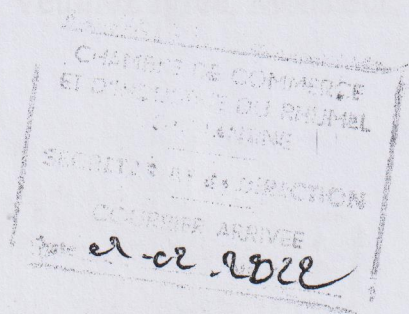 CHAMBRE DE COMMERCE
ET D'INDUSTRIE DU RHUMEL
CONSTANTINE
SECRETARIAT DE DIRECTION
COURRIER ARRIVEE
-02.2022